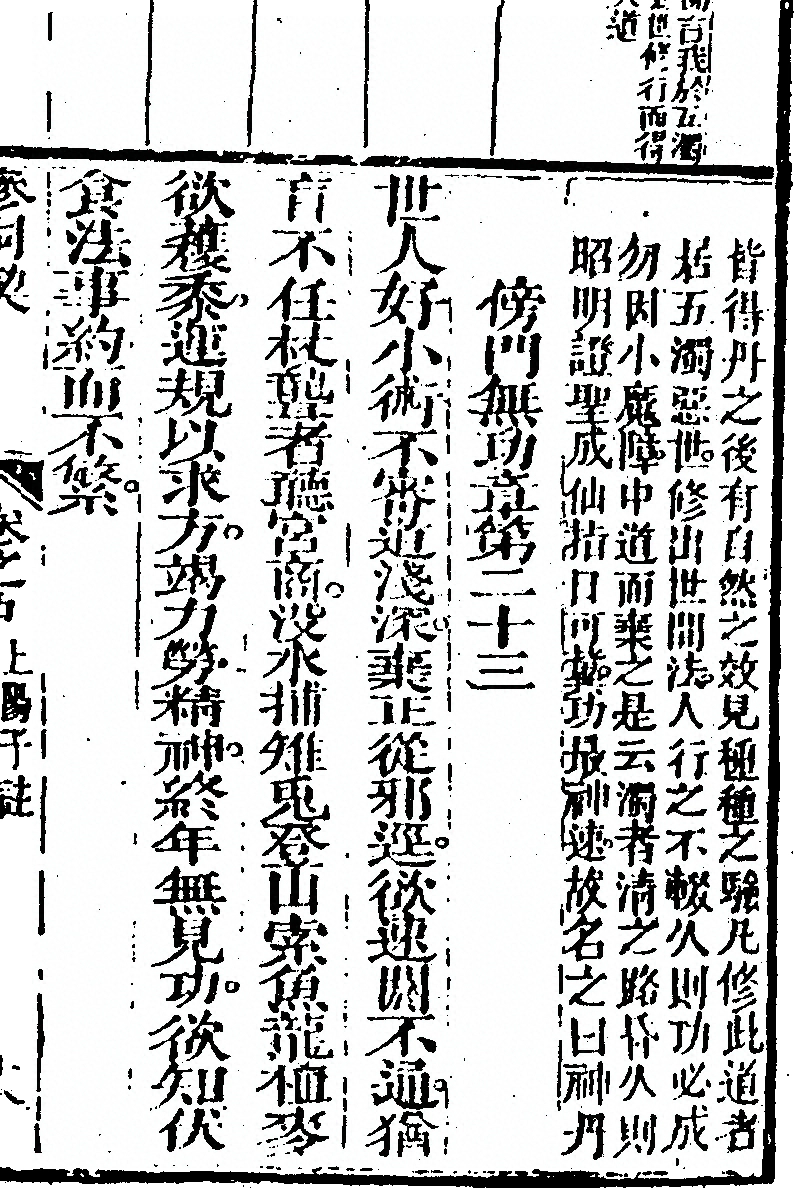 言我於五濁
世修行而得
道
皆得丹之後有自然之效見種種之驗凡修此道者
居五濁惡世修出世間法人行之不輟久則功必成
勿因小魔障中道而棄之是云濁者清之路昏久則
昭明證聖成仙指日可冀功最神速故名之曰神丹
傍門無功章第二十三
世人好小術不審道淺深棄正從邪逕欲速閼不通猶
盲不任杖聾者聽宮商沒水捕雉兎登山索魚龍植麥
欲穫黍運規以求方竭力勞精神終年無見功欲知伏
食法事約而不繁
參同契 卷之 上陽子註